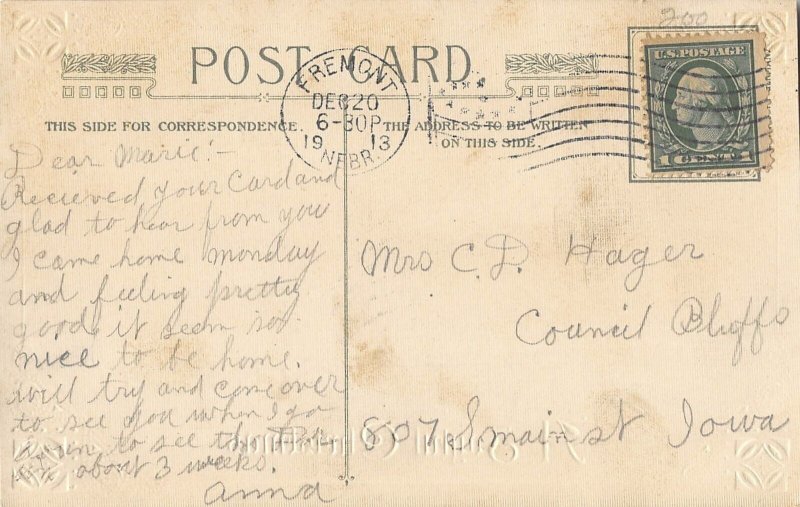 200
POST CARD
U.S. POSTAGE
1 CENT 1
FREMONT
DEC 20
6-30P
19 13
NEBR.
THIS SIDE FOR CORRESPONDENCE.
THE ADDRESS TO BE WRITTEN
ON THIS SIDE.
Dear Marie:-
Recieved your Card and
glad to hear from you
I came home monday
and feeling pretty
good it seem so
nice to be home.
will try and come over
to see you when I go
down to see the
in about 3 weeks.
Anna
Mrs C. D. Hager
Council Bluffs
807 S. main st Iowa